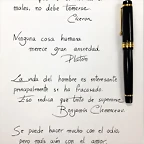 males, no debe temerse.
Cicerón
Ninguna cosa humana
merece gran ansiedad.
Platón
La vida del hombre es interesante
principalmente si ha fracasado.
Eso indica que trató de superarse.
Benjamin Clemenceau
Se puede hacer mucho con el odio,
pero más aún con el amor.